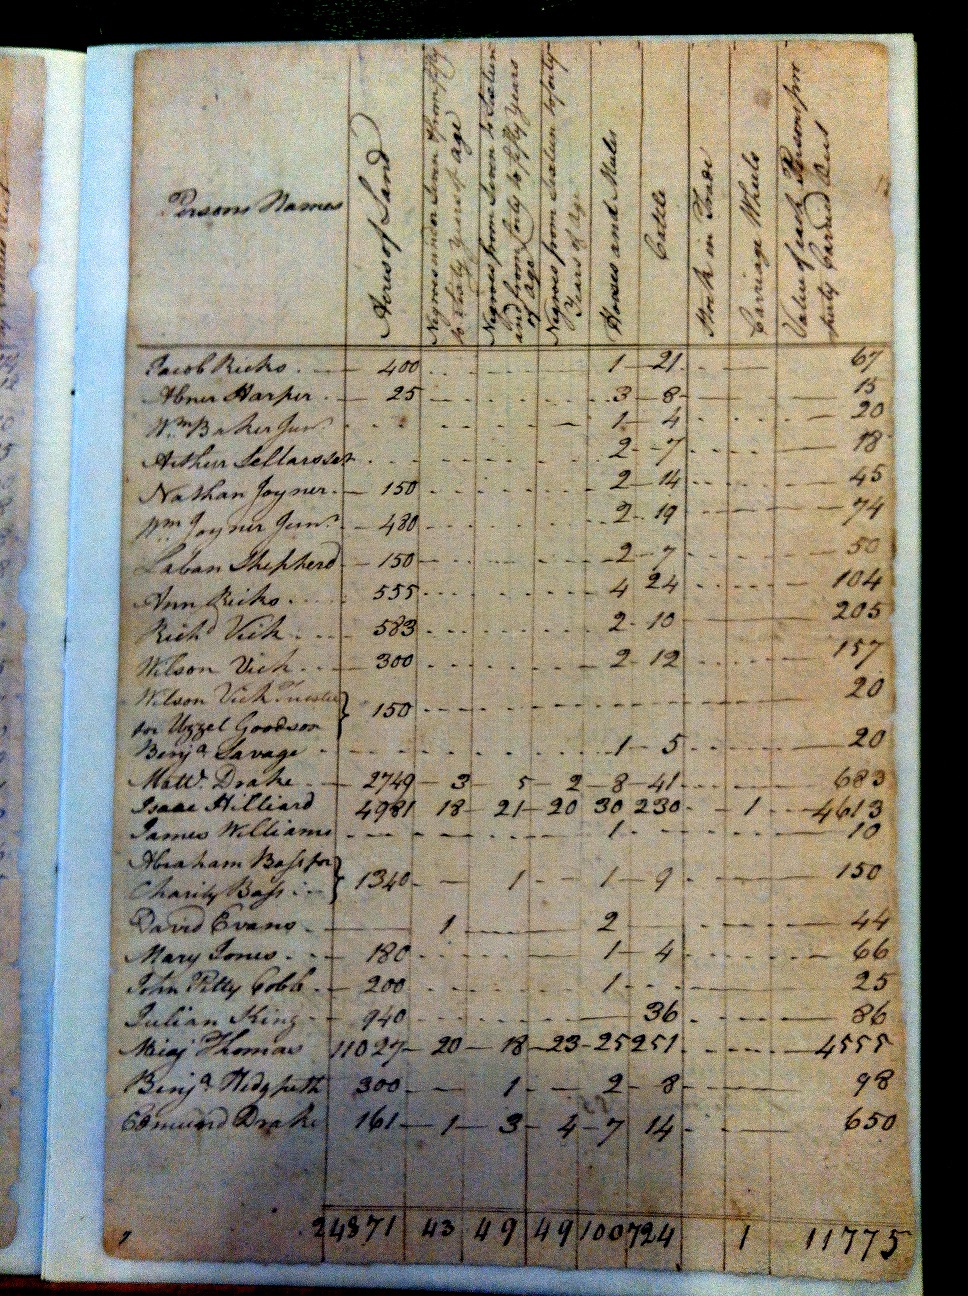 Persons Names
Acres of Land
Negroes under Seven & from fifty
to Sixty Years of age
Negroes from Seven to Sixteen
and from forty to fifty Years
of age
Negroes from Sixteen to forty
Years of Age
Horses and Mules
Cattle
Stock in Trade
Carriage Wheels
Value of each Persons pro
perty Carried Out
Jacob Ricks 400 1 21 67
Abner Harper 25 3 8 15
Wm Baker Junr 1 4 20
Arthur Sellars senr 2 7 18
Nathan Joyner 150 2 14 45
Wm Joyner Junr 480 2 19 74
Laban Shepherd 150 2 7 50
Ann Ricks 555 4 24 104
Richd Vick 583 2 10 205
Wilson Vick 300 2 12 157
Wilson Vick Trustee
for Uzzel Goodson } 150 20
Benja Savage 1 5 20
Mattw Drake 2749 3 5 2 8 41 683
Isaac Hilliard 4981 18 21 20 30 230 1 4613
James Williams 1 10
Abraham Bass for
Charity Bass } 1340 1 1 9 150
David Evans 1 2 44
Mary Jones 180 1 4 66
John Pitty Cobb 200 1 25
Julian King 940 36 86
Micaj Thomas 11027 20 18 23 25 251 4555
Benja Hedgpeth 300 1 2 8 98
Edmund Drake 161 1 3 4 7 14 650
24871 43 49 49 100 724 1 11775